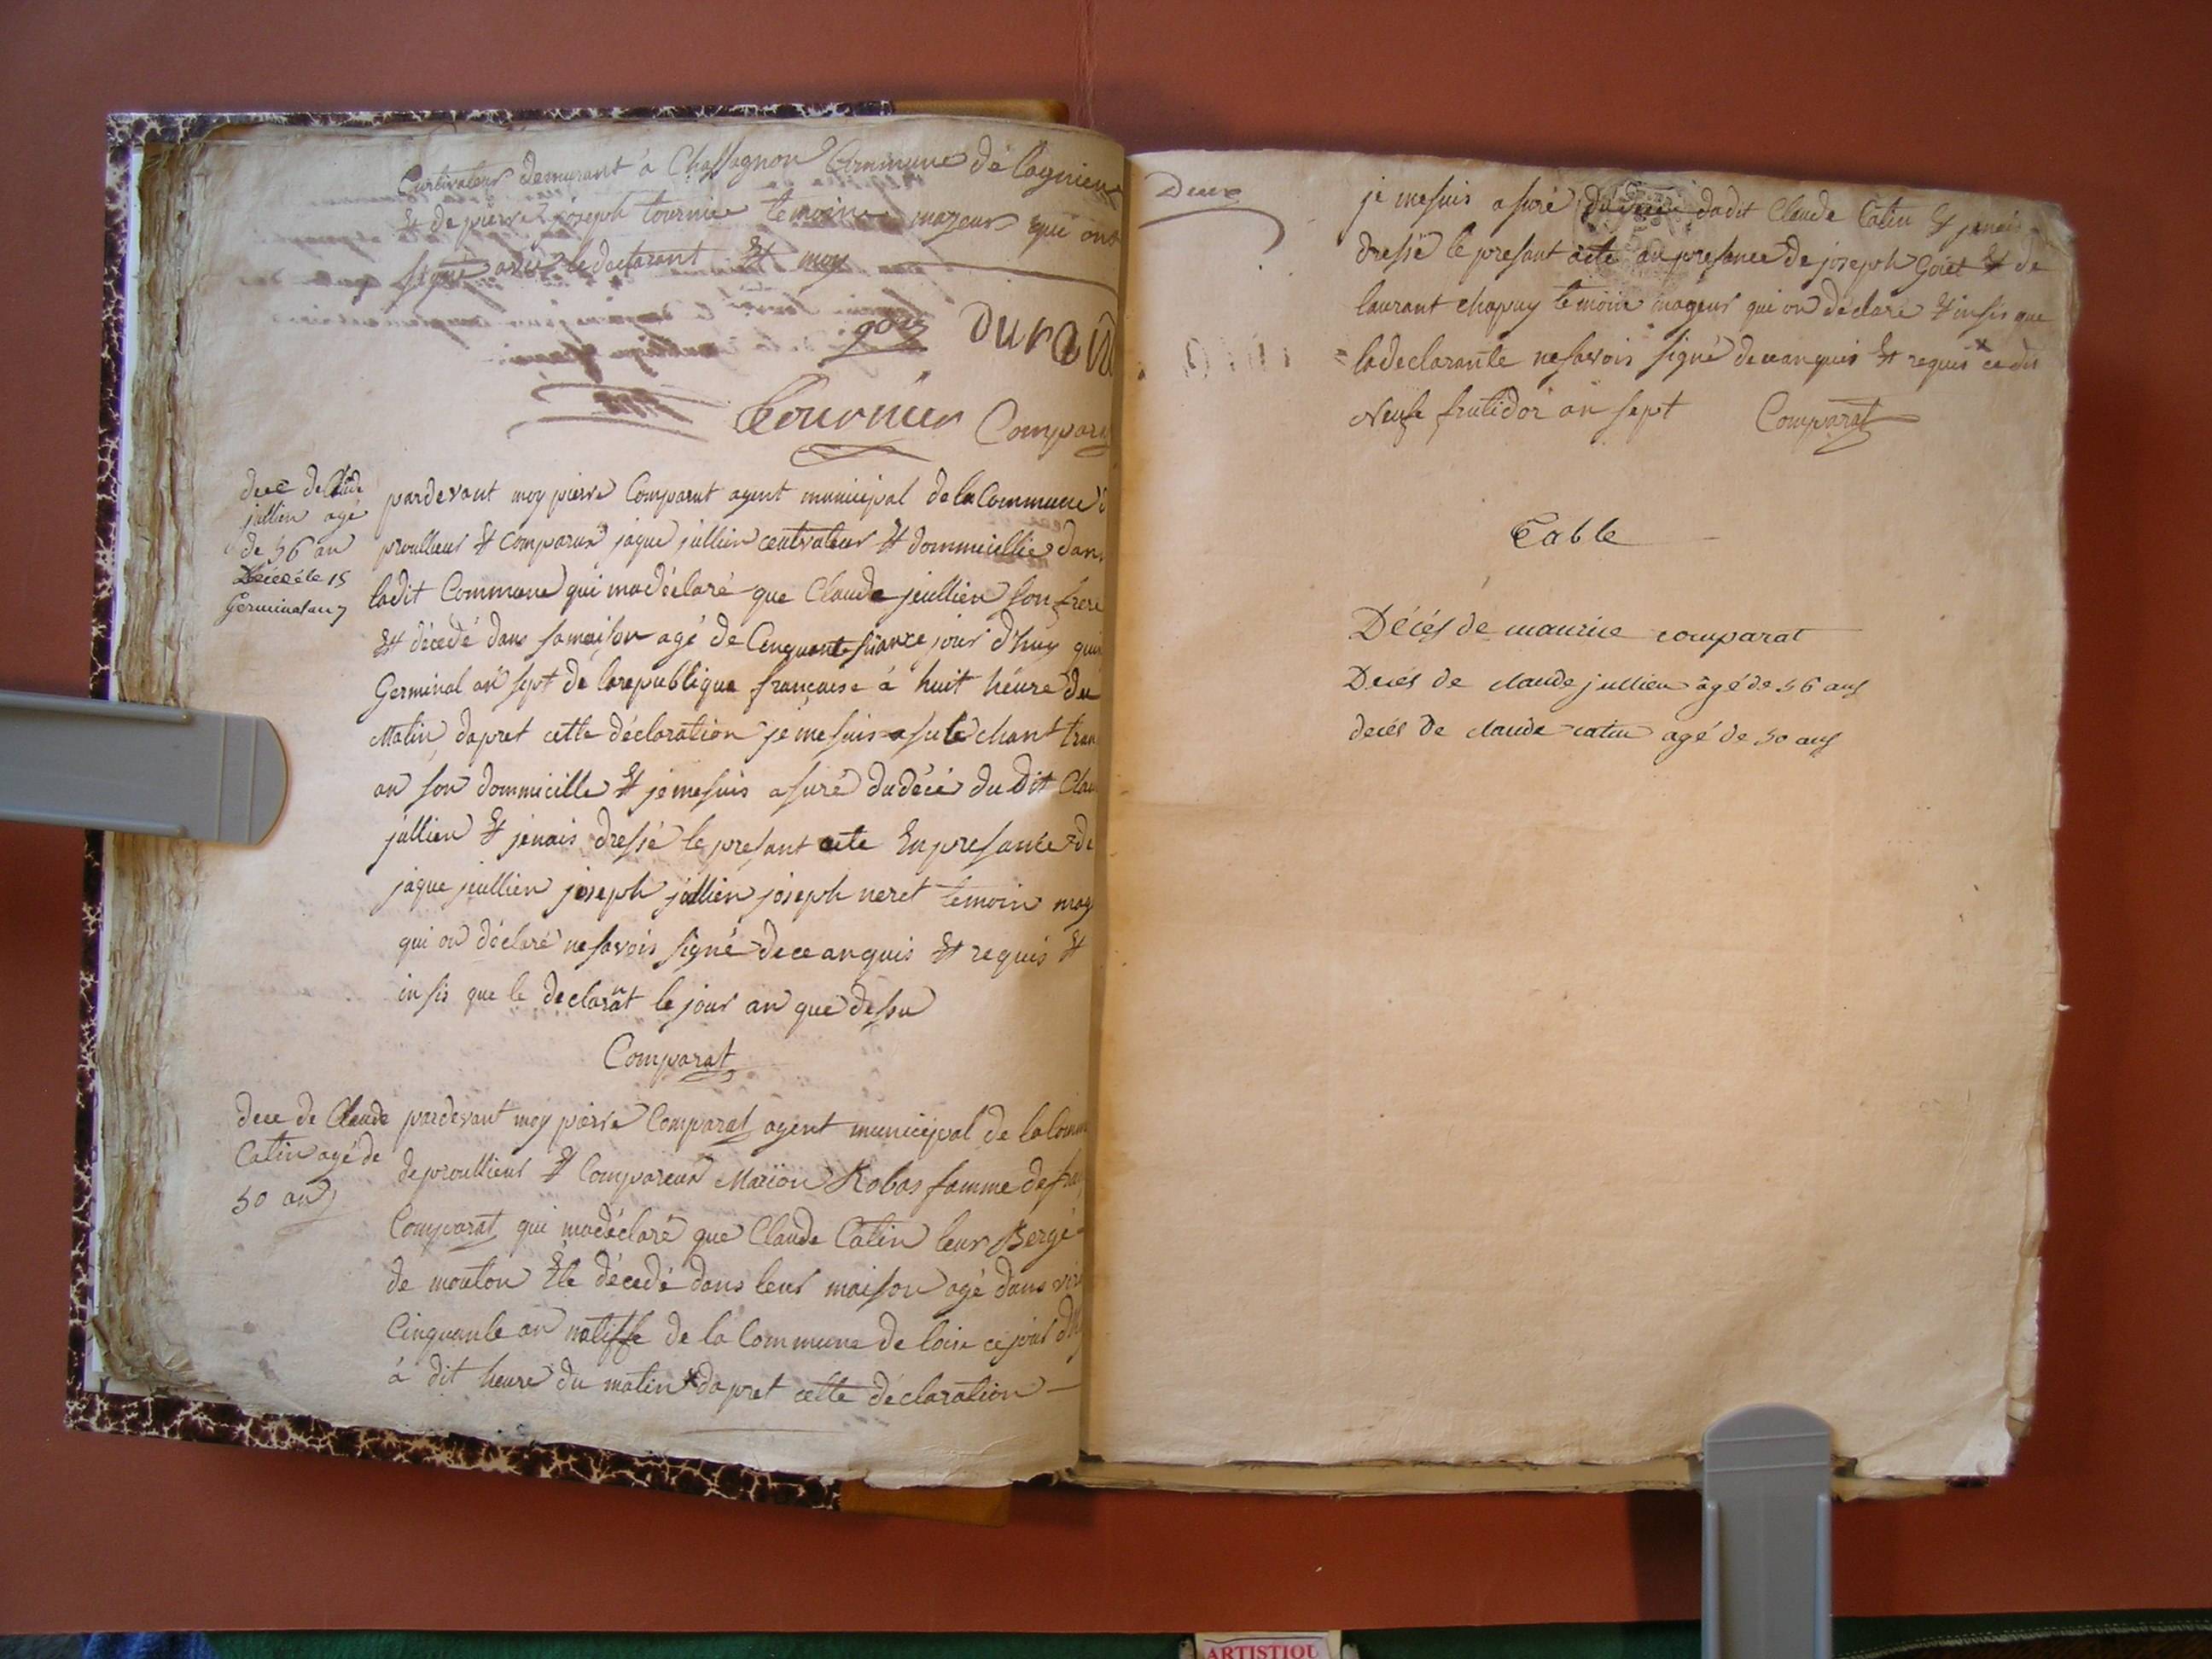 Cultivateur demurant à Chassagnon Commune de lagnieux
Et de pierre joseph tournier temoins majeurs qui ont
signé avec le declarant Et moy
gois Durand
tournier Compara
dece de Claude
jullien agé
de 56 an
Décédé le 15
Germinal an 7
pardevant moy pierre Comparat agent municipal de la Commune d
proullieux Et comparux jaque jullien ceutvateur Et dommicillié dan
ladit Commune qui madéclaré que Claude jeullien son frere
Et décedé dans sa maison agé de Cinquante siance jour d'huy quin
Germinal an sept de la republique française à huit héure du
Matin dapret cette déclaration je me suis asule chant tran
an son dommicille Et je me suis asuré du décé du Dit Clau
jullien Et jénais dressé le presant acte En presance de
jaque jeullien joseph jullien joseph neret temoin maj
qui on déclaré ne savois signé de ce anquis Et requis Et
insis que le declarant le jour an que dessu
Comparat
dece de Claude
Catin agé de
50 an
pardevant moy pierre Comparat agent municipal de la Comm
de proullieux Et Compareux Marion Robas famme de fran
Comparat qui madéclaré que Claude Catin leur Bergé
de mouton Ete décedé dans leur maison agé dans viro
Cinquante an natiffe de la Commune de loise ce jour dh
à dit heure du matin dapret cette déclaration
Deux
je me suis asuré du decé dudit Claude Catin Et jenais
dressé le presant acte an presance de joseph Goiet Et de
laurant chapuy temoin mageur qui on déclaré Et insis que
la declarante ne savois signé de ce anquis Et requis ce dis
Neufe frutidor an sept Comparat
Table
Décés de maurice comparat
Decés de claude jullien âgé de 56 ans
decés de claude catin agé de 50 ans
ARTISTIQU